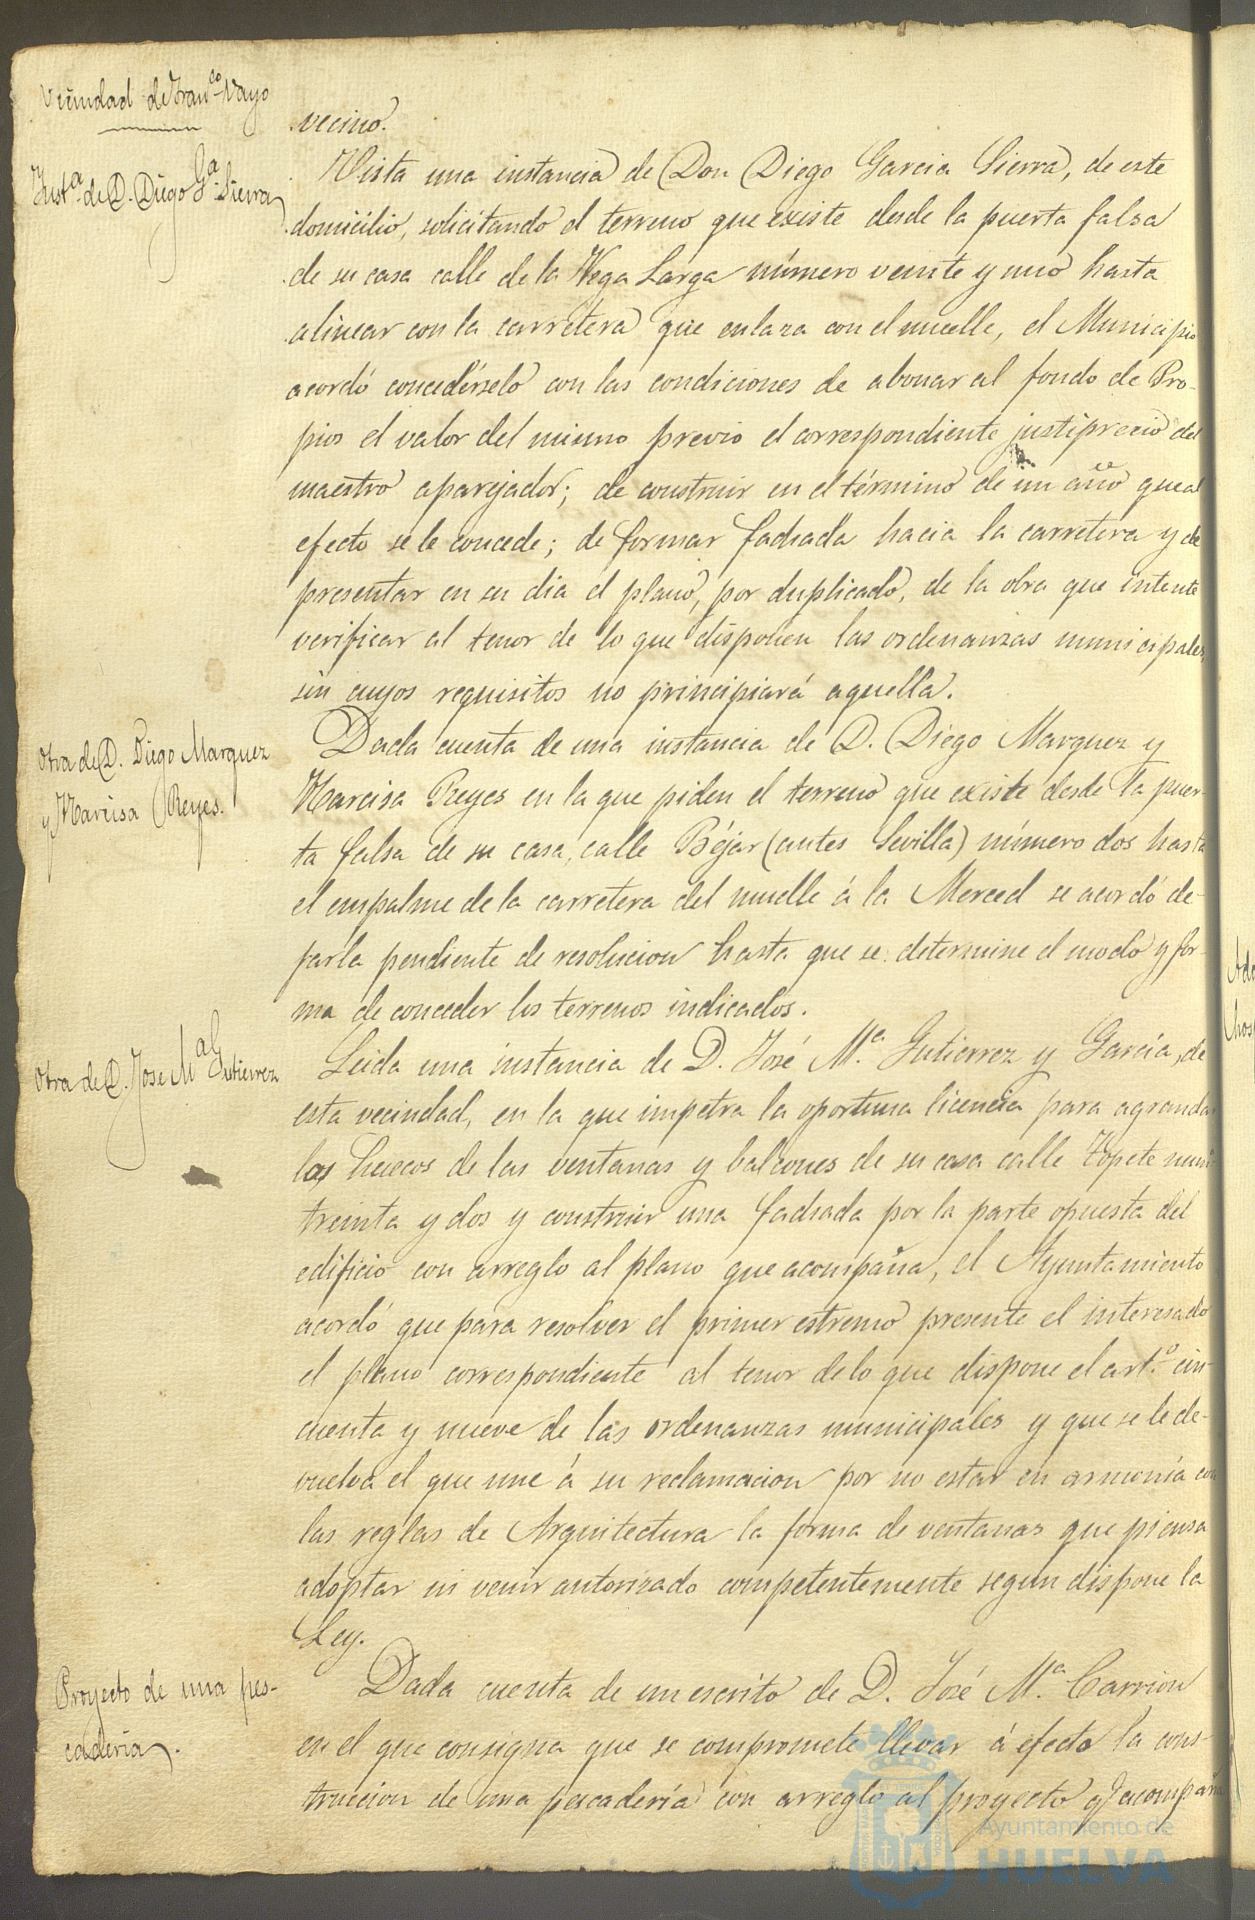 Vecindad de Fran.co Vayo
vecino.
Inst.a de D. Diego G.a Sierra
Vista una instancia de Don Diego Garcia Sierra, de este
domicilio, solicitando el terreno que existe desde la puerta falsa
de su casa calle de la Vega Larga número veinte y uno hasta
alinear con la carretera que enlaza con el muelle, el Municipio
acordó concedérselo con las condiciones de abonar al fondo de Pro-
pios el valor del mismo previo el correspondiente justiprecio del
maestro aparejador; de construir en el término de un año que al
efecto se le concede; de formar fachada hacia la carretera y de
presentar en su dia el plano, por duplicado, de la obra que intente
verificar al tenor de lo que disponen las ordenanzas municipales
sin cuyos requisitos no principiará aquella.
Otra de D. Diego Marquez
y Narcisa Reyes.
Dada cuenta de una instancia de D. Diego Marquez y
Narcisa Reyes en la que piden el terreno que existe desde la puer-
ta falsa de su casa, calle Béjar (antes Sevilla) número dos hasta
el empalme de la carretera del muelle á la Merced se acordó de-
jarla pendiente de resolucion hasta que se determine el modo y for-
ma de conceder los terrenos indicados.
Otra de D. Jose M.a Gutierrez
Leida una instancia de D. José M.a Gutierrez y García, de
esta vecindad, en la que impetra la oportuna licencia para agrandar
los huecos de las ventanas y balcones de su casa calle Topete num.o
treinta y dos y construir una fachada por la parte opuesta del
edificio con arreglo al plano que acompaña, el Ayuntamiento
acordó que para resolver el primer estremo presente el interesado
el plano correspondiente al tenor de lo que dispone el art.o cin-
cuenta y nueve de las ordenanzas municipales y que se le de-
vuelva el que une á su reclamacion por no estar en armonía con
las reglas de Arquitectura la forma de ventanas que piensa
adoptar ni venir autorizado competentemente segun dispone la
Ley.
Proyecto de una pes-
cadería.
Dada cuenta de un escrito de D. José M.a Carrion
en el que consigna que se compromete llevar á efecto la cons-
truccion de una pescadería con arreglo al proyecto q.e acompaña
Ayuntamiento de
HUELVA